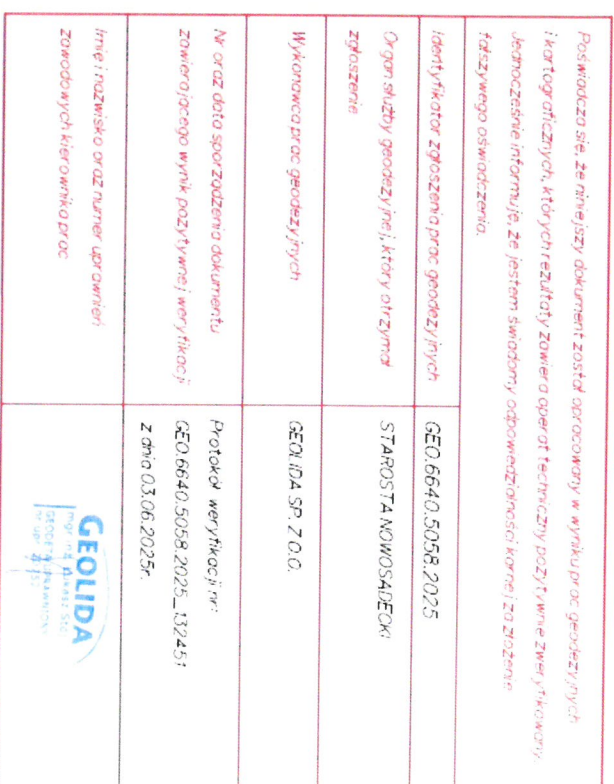 Poświadcza się, że niniejszy dokument został opracowany w wyniku prac geodezyjnych
i kartograficznych, których rezultaty zawiera operat techniczny pozytywnie zweryfikowany.
Jednocześnie informuję, że jestem świadomy odpowiedzialności karnej za złożenie
fałszywego oświadczenia.
Identyfikator zgłoszenia prac geodezyjnych
GEO.6640.5058.2025
Organ służby geodezyjnej, który otrzymał
zgłoszenie
STAROSTA NOWOSĄDECKI
Wykonawca prac geodezyjnych
GEOLIDA SP. Z O.O.
Nr oraz data sporządzenia dokumentu
zawierającego wynik pozytywnej weryfikacji
Protokół weryfikacji nr:
GEO.6640.5058.2025_132451
z dnia 03.06.2025r.
Imię i nazwisko oraz numer uprawnień
zawodowych kierownika prac
GEOLIDA
mgr inż.
GEODETA UPRAWNIONY
nr upr.